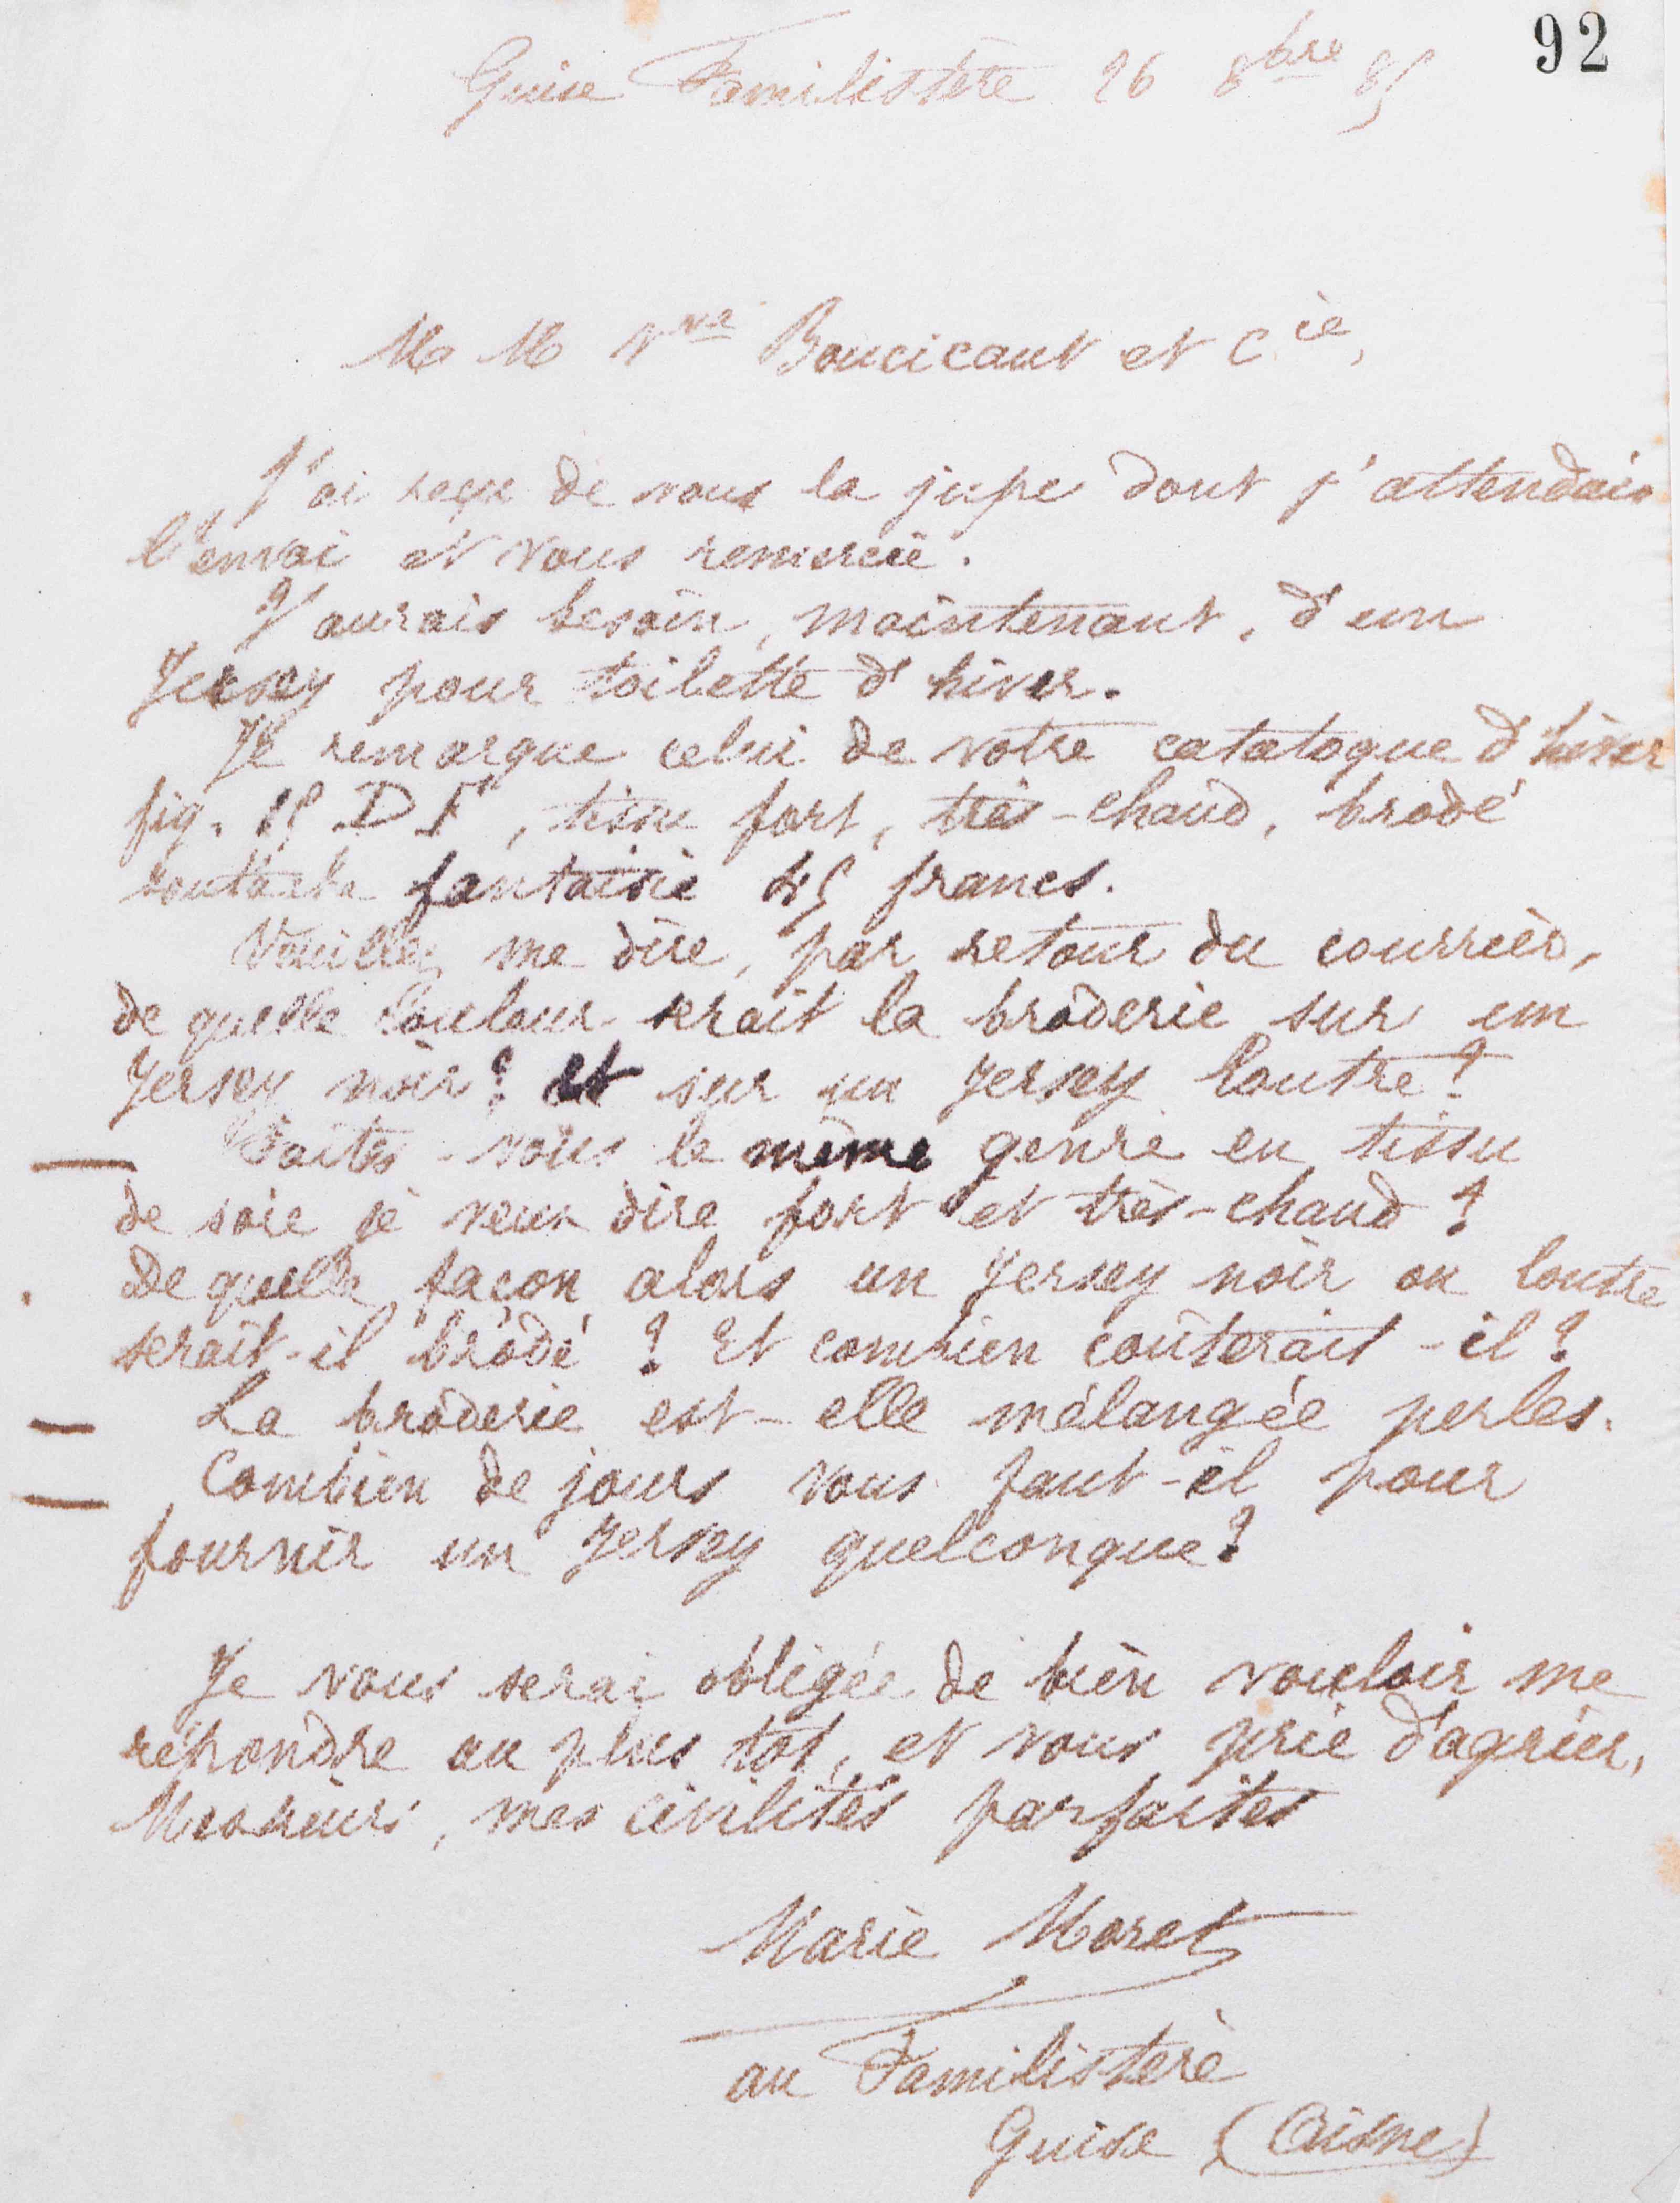 92
Guise Familistère 26 8bre 85
MM Vve Boucicaut et Cie,
J'ai reçu de vous la jupe dont j'attendais
l'envoi et vous remercie.
J'aurais besoin, maintenant, d'un
Jersey pour toilette d'hiver.
Je remarque celui de votre catalogue d'hiver
fig. 15 D F, tissu fort, très-chaud, brodé
soutache fantaisie 45 francs.
Veuillez me dire, par retour du courrier,
de quelle couleur serait la broderie sur un
Jersey noir? et sur un Jersey loutre?
— Faites-vous le même genre en tissu
de soie je veux dire fort et très-chaud?
De quelle façon alors un Jersey noir ou loutre
serait-il brodé? Et combien coûterait-il?
— La broderie est-elle mélangée perles.
— Combien de jours vous faut-il pour
fournir un Jersey quelconque?
Je vous serai obligée de bien vouloir me
répondre au plus tôt, et vous prie d'agréer,
Messieurs, mes civilités parfaites
Marie Moret
au Familistère
Guise (Aisne)